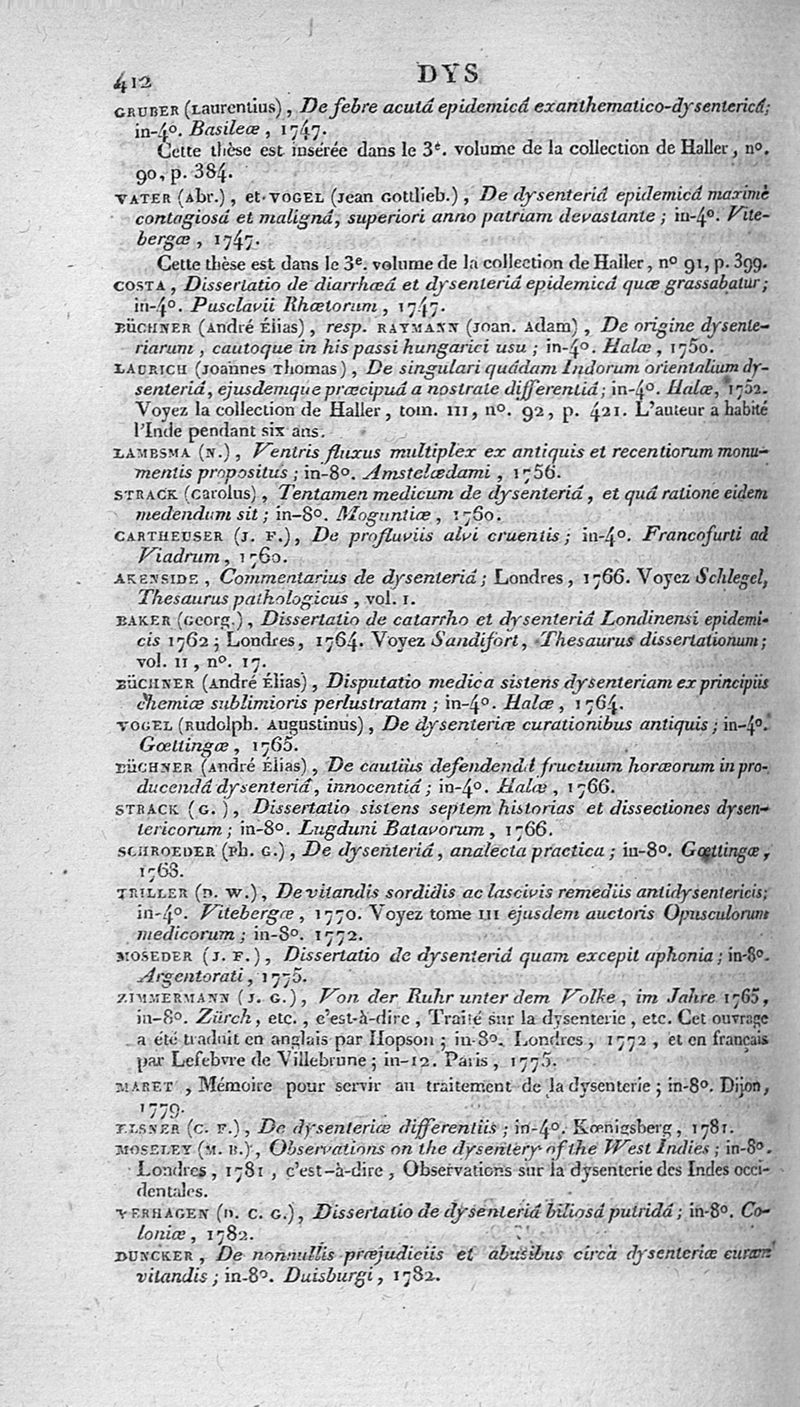 412
DYS
GRUBER (Laurentius), De febre acutâ epidemicâ exanthematico-dysentericâ;
in-4°. Basileæ, 1747.
Cette thèse est insérée dans le 3e. volume de la collection de Haller, n°.
90, p. 384.
VATER (Abr.), et VOGEL (Jean Gottlieb.), De dysenteriâ epidemicâ maximè
contagiosâ et malignâ, superiori anno patriam devastante; in-4°. Vite-
bergæ, 1747.
Cette thèse est dans le 3e. volume de la collection de Haller, n° 91, p. 399.
COSTA, Dissertatio de diarrhœâ et dysenteriâ epidemicâ quæ grassabatur;
in-4°. Pusclavii Rhætorum, 1747.
BÜCHNER (André Élias), resp. RAYMANN (Joan. Adam), De origine dysente-
riarum, cautoque in his passi hungarici usu; in-4°. Halæ, 1750.
LAURICH (Joannes Thomas), De singulari quâdam Indorum orientalium dy-
senteriâ, ejusdemque præcipuâ a nostrate differentiâ; in-4°. Halæ, 1752.
Voyez la collection de Haller, tom. III, n°. 92, p. 421. L'auteur a habité
l'Inde pendant six ans.
LAMBSMA (N.), Ventris fluxus multiplex ex antiquis et recentiorum monu-
mentis propositus; in-8°. Amstelædami, 1756.
STRACK (Carolus), Tentamen medicum de dysenteriâ, et quâ ratione eidem
medendum sit; in-8°. Moguntiæ, 1760.
CARTHEUSER (J. F.), De profluviis alvi cruentis; in-4°. Francofurti ad
Viadrum, 1760.
AKENSIDE, Commentarius de dysenteriâ; Londres, 1766. Voyez Schlegel,
Thesaurus pathologicus, vol. 1.
BAKER (Georg.), Dissertatio de catarrho et dysenteriâ Londinensi epidemi-
cis 1762; Londres, 1764. Voyez Sandifort, Thesaurus dissertationum;
vol. II, n°. 17.
BÜCHNER (André Élias), Disputatio medica sistens dysenteriam ex principiis
chemiæ sublimioris perlustratam; in-4°. Halæ, 1764.
VOGEL (Rudolph. Augustinus), De dysenteriæ curationibus antiquis; in-4°.
Gœttingæ, 1765.
BÜCHNER (André Élias), De cautiùs defendendâ fructuum horæorum in pro-
ducendâ dysenteriâ, innocentiâ; in-4°. Halæ, 1766.
STRACK (G.), Dissertatio sistens septem historias et dissectiones dysen-
tericorum; in-8°. Lugduni Batavorum, 1766.
SCHROEDER (Ph. G.), De dysenteriâ, analecta practica; in-8°. Gœttingæ,
1768.
TRILLER (D. W.), De vitandis sordidis ac lascivis remediis antidysentericis;
in-4°. Vitebergæ, 1770. Voyez tome III ejusdem auctoris Opusculorum
medicorum; in-8°. 1772.
MOSEDER (J. F.), Dissertatio de dysenteriâ quam excepit aphonia; in-8°.
Argentorati, 1775.
ZIMMERMANN (J. G.), Von der Ruhr unter dem Volke, im Jahre 1765,
in-8°. Zürch, etc., c'est-à-dire, Traité sur la dysenterie, etc. Cet ouvrage
a été traduit en anglais par Hopson; in-8°. Londres, 1772, et en français
par Lefebvre de Villebrune; in-12. Paris, 1775.
MARET, Mémoire pour servir au traitement de la dysenterie; in-8°. Dijon,
1779.
ELSNER (C. F.), De dysenteriæ differentiis; in-4°. Kœnigsberg, 1781.
MOSELEY (M. B.), Observations on the dysentery of the West Indies; in-8°.
Londres, 1781, c'est-à-dire, Observations sur la dysenterie des Indes occi-
dentales.
VERHAGEN (D. C. G.), Dissertatio de dysenteriâ biliosâ putridâ; in-8°. Co-
loniæ, 1782.
DUNCKER, De nonnullis præjudiciis et abusibus circa dysenteriæ curam
vitandis; in-8°. Duisburgi, 1782.